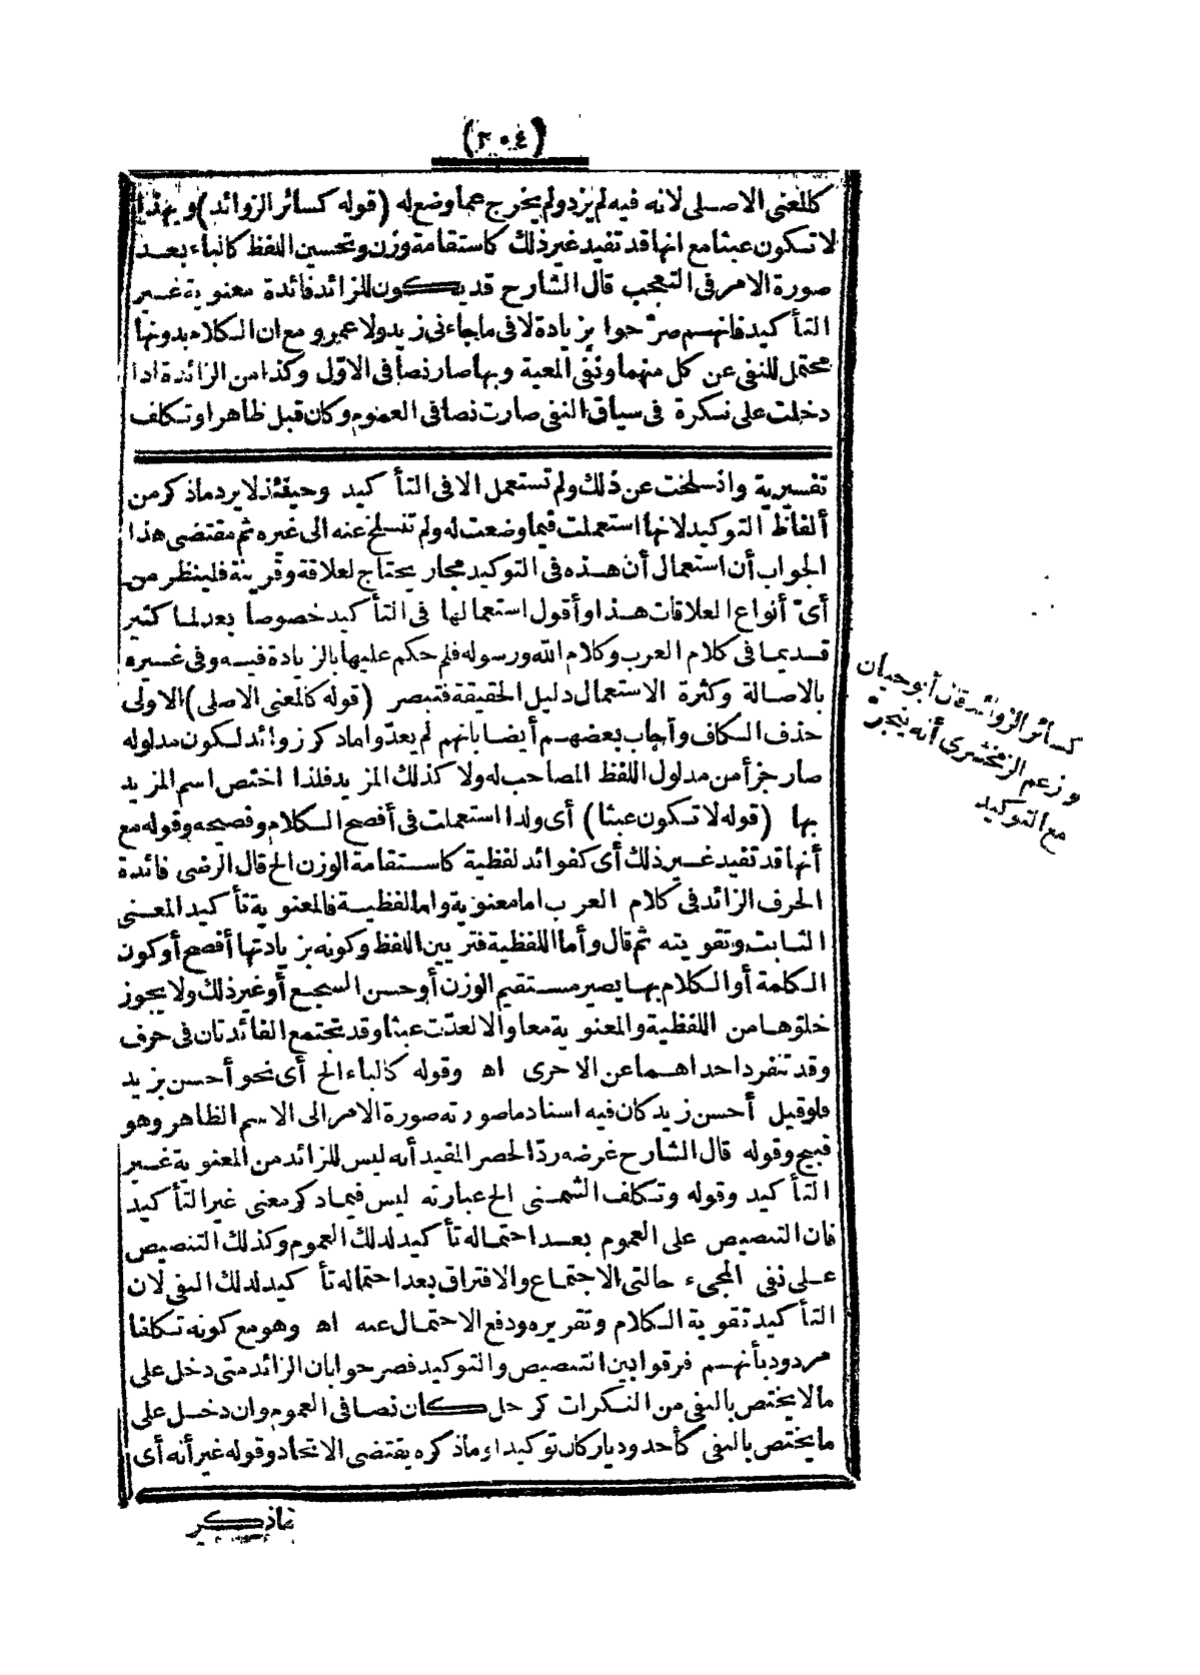 (٢٠٤)
كالمعنى الاصلى لانه فيه لم يزد ولم يخرج عما وضع له (قوله كسائر الزوائد) وبهذا
لا تكون عبثا مع انها قد تفيد غير ذلك كاستقامة وزن وتحسين اللفظ كالباء بعد
صورة الامر فى التعجب قال الشارح قد يكون للزائد فائدة معنوية غير
التأكيد فانهم صرّحوا بزيادة لا فى ما جاءنى زيد ولا عمرو مع ان الكلام بدونها
محتمل للنفى عن كل منهما ونفى المعية وبها صار نصا فى الاوّل وكذا من الزائدة اذا
دخلت على نكرة فى سياق النفى صارت نصا فى العموم وكان قبل ظاهرا وتكلف
تفسيرية وانسلخت عن ذلك ولم تستعمل الا فى التأكيد وحينئذ لا يرد ما ذكر من
ألفاظ التوكيد لانها استعملت فيما وضعت له ولم تنسلخ عنه الى غيره ثم مقتضى هذا
الجواب أن استعمال أن هذه فى التوكيد مجاز يحتاج لعلاقة وقرينة فلينظر من
أىّ أنواع العلاقات هذا وأقول استعمالها فى التأكيد خصوصا بعد لما كثير
قديما فى كلام العرب وكلام الله ورسوله فلم حكم عليها بالزيادة فيه وفى غيره
بالاصالة وكثرة الاستعمال دليل الحقيقة فتبصر (قوله كالمعنى الاصلى) الاولى
حذف الكاف وأجاب بعضهم أيضا بانهم لم يعدّوا ما ذكر زوائد لكون مدلوله
صار جزأ من مدلول اللفظ المصاحب له ولا كذلك المزيد فلذا اختص اسم المزيد
بها (قوله لا تكون عبثا) أى ولذا استعملت فى أفصح الكلام وفصيحه وقوله مع
أنها قد تفيد غير ذلك أى كفوائد لفظية كاستقامة الوزن الخ قال الرضى فائدة
الحرف الزائد فى كلام العرب اما معنوية واما لفظية فالمعنوية تأكيد المعنى
الثابت وتقويته ثم قال وأما اللفظية فتزيين اللفظ وكونه بزيادتها أفصح أو كون
الكلمة أو الكلام بها يصير مستقيم الوزن أو حسن السجع أو غير ذلك ولا يجوز
خلوّها من اللفظية والمعنوية معا والا لعدّت عبثا وقد تجتمع الفائدتان فى حرف
وقد تنفرد احداهما عن الاخرى اه وقوله كالباء الخ أى نحو أحسن بزيد
فلو قيل أحسن زيد كان فيه اسناد ما صورته صورة الامر الى الاسم الظاهر وهو
قبيح وقوله قال الشارح غرضه ردّ الحصر المفيد أنه ليس للزائد من المعنوية غير
التأكيد وقوله وتكلف الشمنى الخ عبارته ليس فيما ذكر معنى غير التأكيد
فان التنصيص على العموم بعد احتماله تأكيد لذلك العموم وكذلك التنصيص
على نفى المجىء حالتى الاجتماع والافتراق بعد احتماله تأكيد لذلك النفى لان
التأكيد تقوية الكلام وتقريره ودفع الاحتمال عنه اه وهو مع كونه تكلفا
مردود بأنهم فرقوا بين التنصيص والتوكيد فصرحوا بان الزائد متى دخل على
مالا يختص بالنفى من النكرات كرجل كان نصا فى العموم وان دخل على
ما يختص بالنفى كأحد وديار كان توكيدا وما ذكره يقتضى الاتحاد وقوله غير أنه أى
كسائر الزوائد قال أبو حيان
وزعم الزمخشرى أنه ينجرّ
مع التوكيد